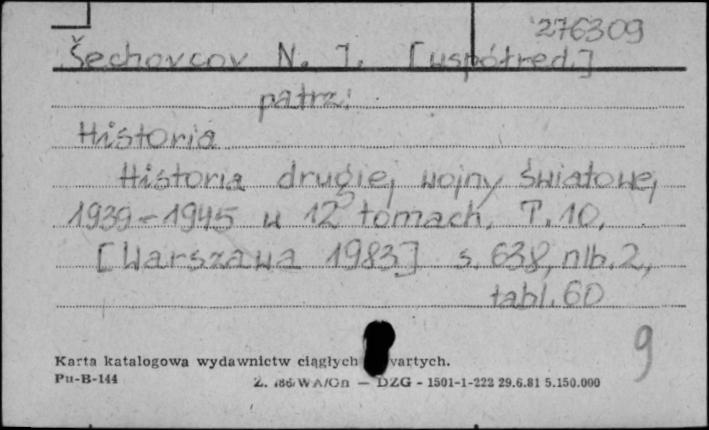 276309
Šechovcov N. I. [współred.]
patrz:
Historia
Historia drugiej wojny światowej
1939-1945 w 12 tomach. T. 10.
[Warszawa 1983] s. 638, nlb. 2,
tabl. 60
9
Karta katalogowa wydawnictw ciągłych wartych.
Pu-B-144 — DZG - 1501-1-222 29.6.81 5.150.000